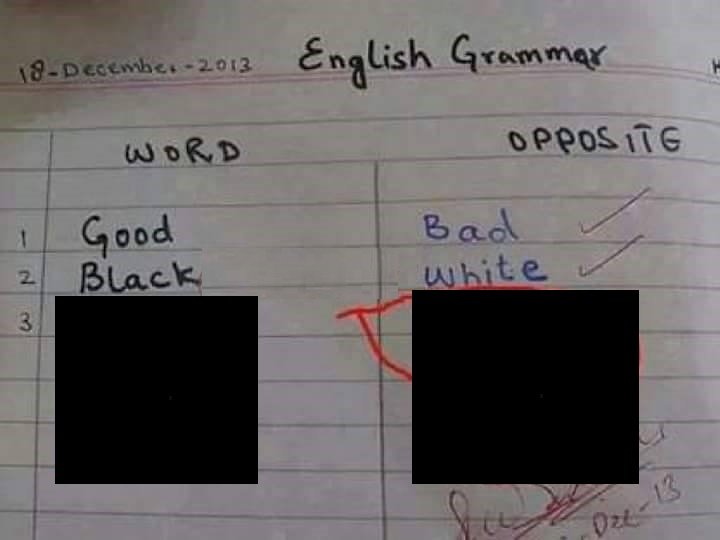 18-December-2013 English Grammar
WORD OPPOSITE
1 Good Bad
2 Black White
3
Dec-13